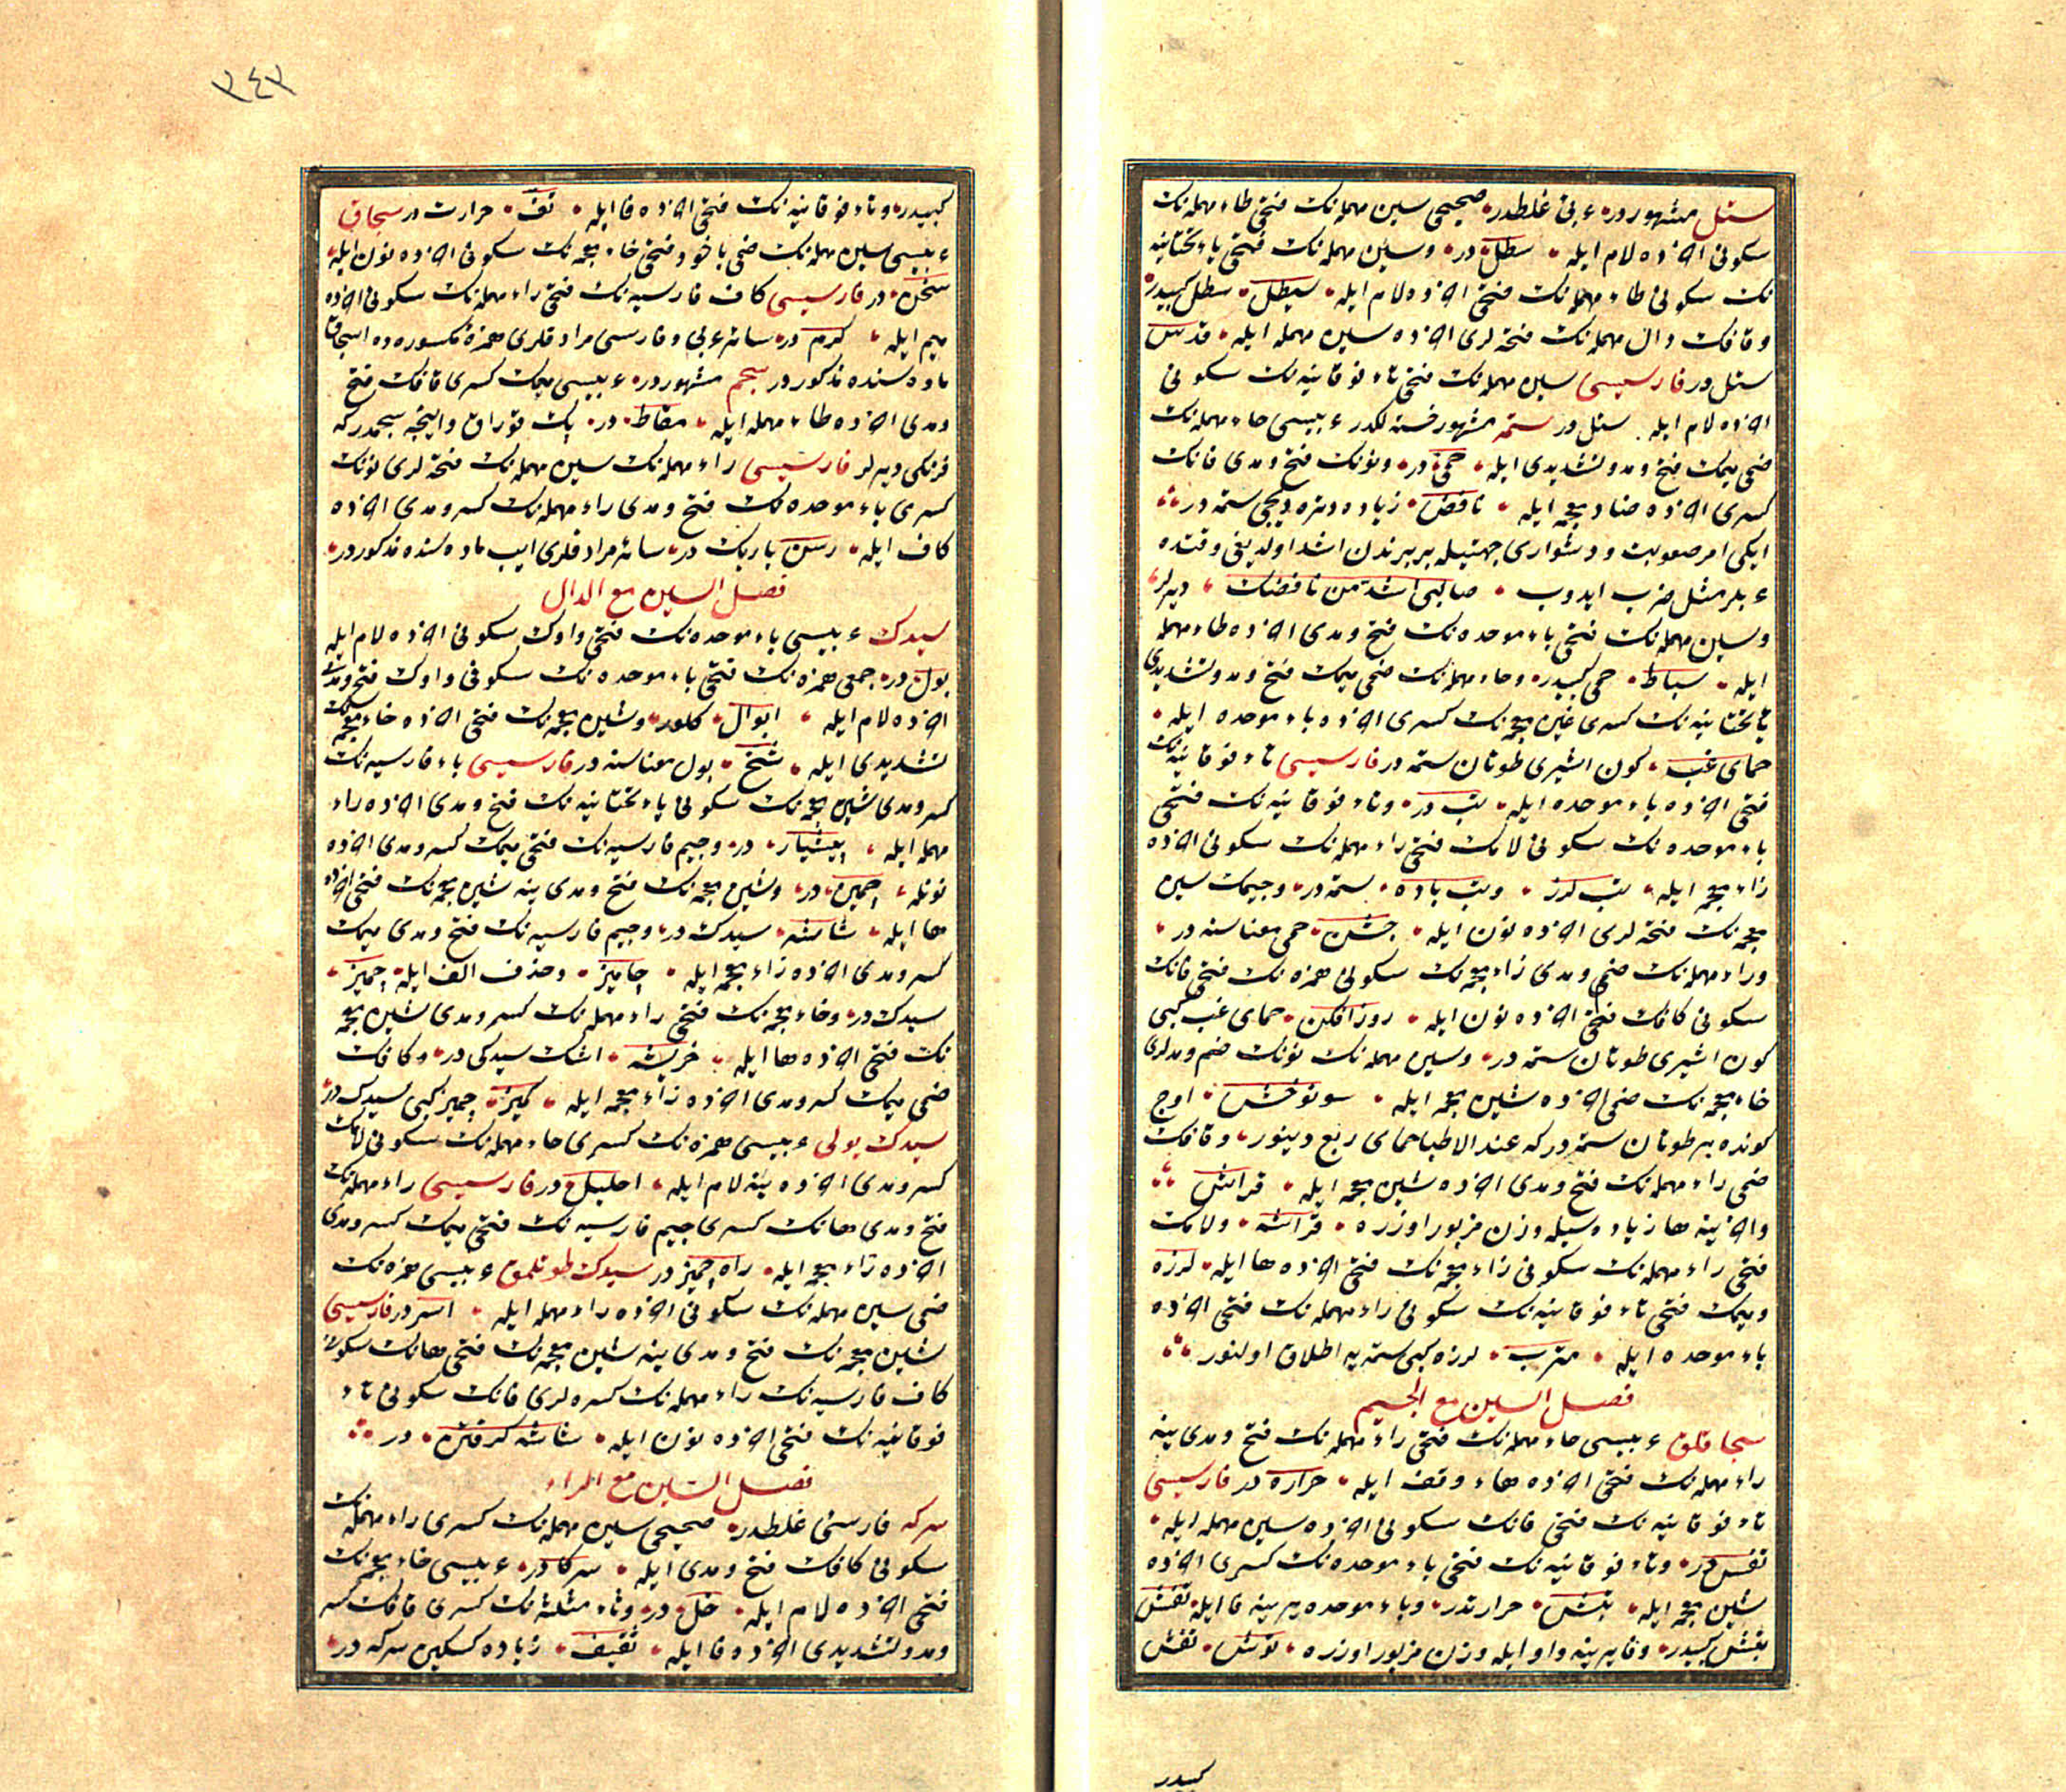 ستل مشهوردر عربی غلطدر صحیحی سین مهمله‌نک فتحی طاء مهمله‌نک
سکونی اخرده لام ایله سطل در وسین مهمله‌نک فتحی یاء تحتانیه
نک سکونی طاء مهمله‌نک فتحی اخرده لام ایله سیطل سطل کبیدر
وقافک دال مهمله‌نک فتحه‌لری اخرده سین مهمله ایله قدس
ستل در فارسیسی سین مهمله‌نک فتحی تاء فوقانیه‌نک سکونی
اخرده لام ایله ستل در ستمه مشهور خسته‌لکدر عربیسی حاء مهمله‌نک
ضمی میمک فتح ومد وتشدیدی ایله حمی در ونونک فتح ومدی فانک
کسری اخرده ضاد معجمه ایله نافض زیاده دتره‌دیجی ستمه در
ایکی امر صعوبت ودشواری جهتیله بربرندن اشد اولدیغی وقتده
عربلر مثل ضرب ایدوب صالبی اشد من نافضک دیرلر
وسین مهمله‌نک فتحی باء موحده‌نک فتح ومدی اخرده طاء مهمله
ایله سباط حمی کبیدر وحاء مهمله‌نک ضمی میمک فتح ومد وتشدیدی
یاء تحتانیه‌نک کسری غین معجمه‌نک کسری اخرده باء موحده ایله
حمای غب کون اشیری طوتان ستمه در فارسیسی تاء فوقانیه‌نک
فتحی اخرده باء موحده ایله تب در وتاء فوقانیه‌نک فتحی
باء موحده‌نک سکونی لامک فتحی راء مهمله‌نک سکونی اخرده
زاء معجمه ایله تب لرز وتب باده ستمه در وجیمک شین
معجمه‌نک فتحه‌لری اخرده نون ایله جشن حمی معناسنه در
وراء مهمله‌نک ضمی ومدی زاء معجمه‌نک سکونی همزه‌نک فتحی فانک
سکونی کافک فتحی اخرده نون ایله روز افکن حمای غب کبی
کون اشیری طوتان ستمه در وسین مهمله‌نک نونک ضم ومدلری
خاء معجمه‌نک ضمی اخرده شین معجمه ایله سونوخش اوج
کونده بر طوتان ستمه درکه عند الاطبا حمای ربع دینور وقافک
ضمی راء مهمله‌نک فتح ومدی اخرده شین معجمه ایله قراش
واخرینه ها زیاده‌سیله وزن مزبور اوزره قراشه ولامک
فتحی راء مهمله‌نک سکونی زاء معجمه‌نک فتحی اخرده ها ایله لرزه
ومیمک فتحی تاء فوقانیه‌نک سکونی راء مهمله‌نک فتحی اخرده
باء موحده ایله مترب لرزه کبی ستمه‌یه اطلاق اولنور
فصل السین مع الجیم
سجاقلق عربیسی حاء مهمله‌نک فتحی راء مهمله‌نک فتح ومدی ینه
راء مهمله‌نک فتحی اخرده هاء وقف ایله حراره در فارسیسی
تاء فوقانیه‌نک فتحی فانک سکونی اخرده سین مهمله ایله
تفس در وتاء فوقانیه‌نک فتحی باء موحده‌نک کسری اخرده
شین معجمه ایله تبش حرارتدر وباء موحده یرینه فا ایله تفش
تبش کبیدر وفا یرینه واو ایله وزن مزبور اوزره توش تفش
کبیدر
٣٤٣
کبیدر وتاء فوقانیه‌نک فتحی اخرده فا ایله تف حرارت در سجاق
عربیسی سین مهمله‌نک ضمی یاخود فتحی خاء معجمه‌نک سکونی اخرده نون ایله
سخن در فارسیسی کاف فارسیه‌نک فتحی راء مهمله‌نک سکونی اخرده
میم ایله کرم در سائر عربی وفارسی مرادفلری همزۀ مکسوره‌ده اسجاق
ماده‌سنده مذکوردر سجم مشهوردر عربیسی میمک کسری قافک فتح
ومدی اخرده طاء مهمله ایله مقاط در پک قوراق واینجه سجمدرکه
فرنکی دیرلر فارسیسی راء مهمله‌نک سین مهمله‌نک فتحه‌لری نونک
کسری باء موحده‌نک فتح ومدی راء مهمله‌نک کسر ومدی اخرده
کاف ایله رسن باریک در سائر مرادفلری ایپ ماده‌سنده مذکوردر
فصل السین مع الدال
سیدک عربیسی باء موحده‌نک فتحی واوک سکونی اخرده لام ایله
بول در جمعی همزه‌نک فتحی باء موحده‌نک سکونی واوک فتح ومدی
اخرده لام ایله ابوال کلور وشین معجمه‌نک فتحی اخرده خاء معجمه‌نک
تشدیدی ایله شخ بول معناسنه در فارسیسی باء فارسیه‌نک
کسر ومدی شین معجمه‌نک سکونی یاء تحتانیه‌نک فتح ومدی اخرده راء
مهمله ایله پیشیار در وجیم فارسیه‌نک فتحی میمک کسر ومدی اخرده
نونله چمین در وشین معجمه‌نک فتح ومدی ینه شین معجمه‌نک فتحی اخرده
ها ایله شاشه سیدک در وجیم فارسیه‌نک فتح ومدی میمک
کسر ومدی اخرده زاء معجمه ایله چامیز وحذف الف ایله چمیز
سیدک در وخاء معجمه‌نک فتحی راء مهمله‌نک کسر ومدی شین معجمه
نک فتحی اخرده ها ایله خریشه اشک سیدکی در وکافک
ضمی میمک کسر ومدی اخرده زاء معجمه ایله کمیز چمیز کبی سیدک در
سیدک یولی عربیسی همزه‌نک کسری حاء مهمله‌نک سکونی لامک
کسر ومدی اخرده ینه لام ایله احلیل در فارسیسی راء مهمله‌نک
فتح ومدی هانک کسری جیم فارسیه‌نک فتحی میمک کسر ومدی
اخرده زاء معجمه ایله راه چمیز در سیدک طوتلمق عربیسی همزه‌نک
ضمی سین مهمله‌نک سکونی اخرده راء مهمله ایله اسر در فارسیسی
شین معجمه‌نک فتح ومدی ینه شین معجمه‌نک فتحی هانک سکونی
کاف فارسیه‌نک راء مهمله‌نک کسره‌لری فانک سکونی تاء
فوقانیه‌نک فتحی اخرده نون ایله شاشه کرفتن در
فصل السین مع الراء
سرکه فارسی غلطدر صحیحی سین مهمله‌نک کسری راء مهمله‌نک
سکونی کافک فتح ومدی ایله سرکا در عربیسی خاء معجمه‌نک
فتحی اخرده لام ایله خل در وثاء مثلثه‌نک کسری قافک کسر
ومد وتشدیدی اخرده فا ایله ثقیف زیاده کسکین سرکه در